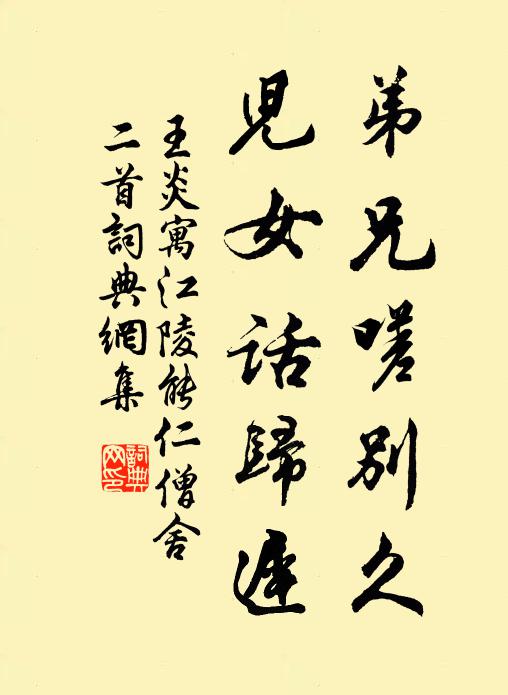 弟兄嗟别久
兒女話歸遲
王炎寓江陵能仁僧舍
二首詞典網集
詞典
网印